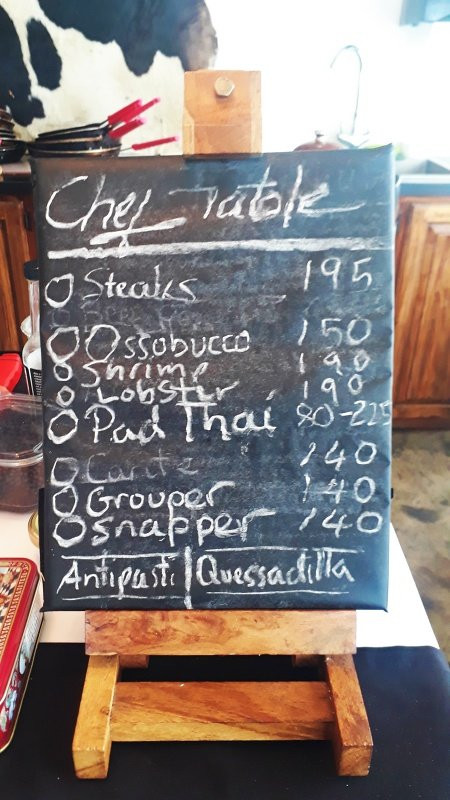 Chef Table
Steaks 195
Ossobucco 150
Shrimp 190
Lobster 190
Pad Thai 80-225
140
Grouper 140
Snapper 140
Antipasti | Quessadilla